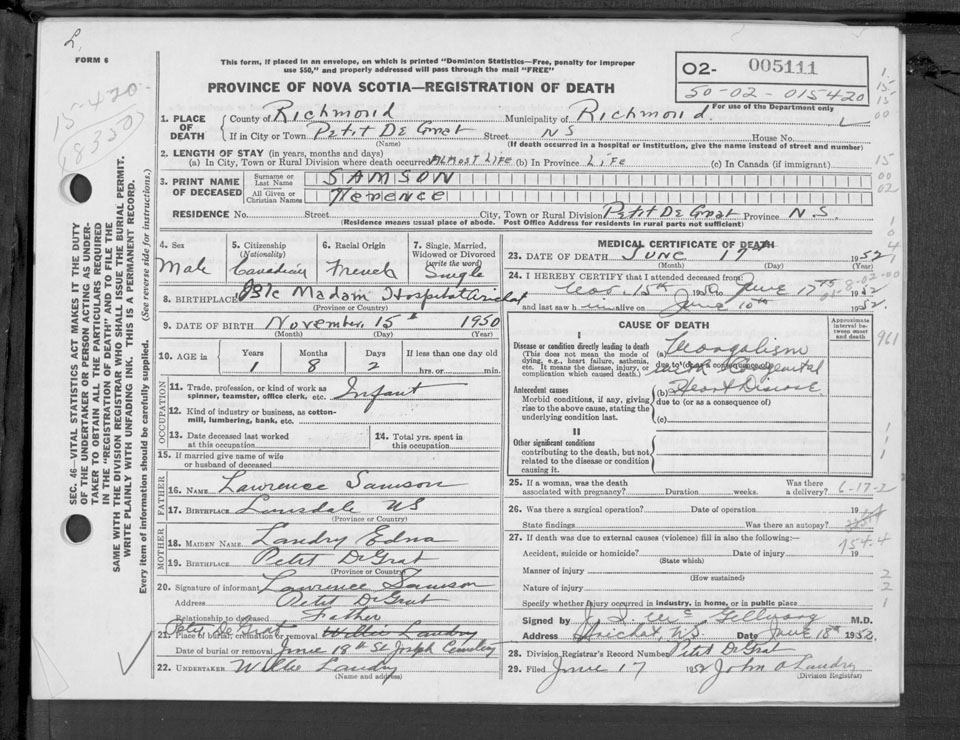 L
FORM 6
This form, if placed in an envelope, on which is printed "Dominion Statistics—Free, penalty for improper
use $50," and properly addressed will pass through the mail "FREE"
PROVINCE OF NOVA SCOTIA—REGISTRATION OF DEATH
02- 005111
50-02-015420
For use of the Department only
15-420-
(8320)
1. PLACE OF DEATH
County of Richmond Municipality of Richmond.
If in City or Town Petit De Grat Street NS House No.
(Name) (If death occurred in a hospital or institution, give the name instead of street and number)
2. LENGTH OF STAY (in years, months and days)
(a) In City, Town or Rural Division where death occurred Almost Life (b) In Province Life (c) In Canada (if immigrant)
3. PRINT NAME OF DECEASED
Surname or Last Name SAMSON
All Given or Christian Names
RESIDENCE No. Street City, Town or Rural Division Petit De Grat Province N.S.
(Residence means usual place of abode. Post Office Address for residents in rural parts not sufficient)
4. Sex Male
5. Citizenship (Nationality) Canadian
6. Racial Origin French
7. Single, Married, Widowed or Divorced (write the word) Single
8. BIRTHPLACE Isle Madam Hospital Arichat
(Province or Country)
9. DATE OF BIRTH November 15th 1950
(Month) (Day) (Year)
10. AGE in Years Months Days If less than one day old
1 8 2 hrs. or min.
OCCUPATION
11. Trade, profession, or kind of work as spinner, teamster, office clerk, etc. Infant
12. Kind of industry or business, as cotton-mill, lumbering, bank, etc.
13. Date deceased last worked at this occupation
14. Total yrs. spent in this occupation
15. If married give name of wife or husband of deceased
FATHER
16. NAME Lawrence Samson
17. BIRTHPLACE NS
(Province or Country)
MOTHER
18. MAIDEN NAME Landry Edna
19. BIRTHPLACE Petit De Grat
(Province or Country)
20. Signature of informant Lawrence Samson
Address Petit De Grat
Relationship to deceased Father
Petit De Grat
21. Place of burial, cremation or removal Willie Landry
Date of burial or removal June 18th St Joseph Cemetery
22. UNDERTAKER Willie Landry
(Name and address)
MEDICAL CERTIFICATE OF DEATH
23. DATE OF DEATH June 17 1952
(Month) (Day) (Year)
24. I HEREBY CERTIFY that I attended deceased from:
Nov. 15th 1950 to June 17th 1952
and last saw h im alive on June 10th 1952.
CAUSE OF DEATH
Approximate interval between onset and death
I
Disease or condition directly leading to death
(This does not mean the mode of dying, e.g., heart failure, asthenia, etc. It means the disease, injury, or complication which caused death.)
(a) Mongolism
due to (or as a consequence of)
with Congenital
Antecedent causes
Morbid conditions, if any, giving rise to the above cause, stating the underlying condition last.
(b) Heart Disease
due to (or as a consequence of)
(c)
II
Other significant conditions
contributing to the death, but not related to the disease or condition causing it.
25. If a woman, was the death associated with pregnancy? Duration weeks. Was there a delivery?
6-17-2
26. Was there a surgical operation? Date of operation 19
State findings Was there an autopsy?
27. If death was due to external causes (violence) fill in also the following:—
754.4
Accident, suicide or homicide? Date of injury 19
(State which)
Manner of injury
(How sustained)
Nature of injury
Specify whether injury occurred in industry, in home, or in public place
Signed by M.D.
Address Arichat, N.S. Date June 18th 1952.
28. Division Registrar's Record Number Petit De Grat
29. Filed June 17 1952 John O Landry
(Division Registrar)
SEC. 46—VITAL STATISTICS ACT MAKES IT THE DUTY
OF THE UNDERTAKER OR PERSON ACTING AS UNDER-
TAKER TO OBTAIN ALL THE PARTICULARS REQUIRED
IN THE "REGISTRATION OF DEATH" AND TO FILE THE
SAME WITH THE DIVISION REGISTRAR WHO SHALL ISSUE THE BURIAL PERMIT.
WRITE PLAINLY WITH UNFADING INK. THIS IS A PERMANENT RECORD.
Every item of information should be carefully supplied. (See reverse side for instructions.)
1
15
15
00
15
00
02
1
0
4
1
961
1
1
2
2
1